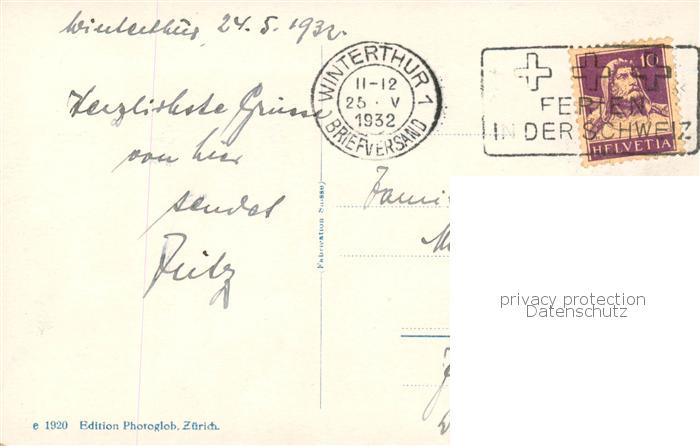 Winterthur, 24.5.1932.
Herzlichste Grüsse
von hier
sendet
Fritz
WINTERTHUR 1
11-12
25. V
1932
BRIEFVERSAND
FERIEN
IN DER SCHWEIZ
10
HELVETIA
Fabrication Suisse
privacy protection
Datenschutz
e 1920 Edition Photoglob, Zürich.